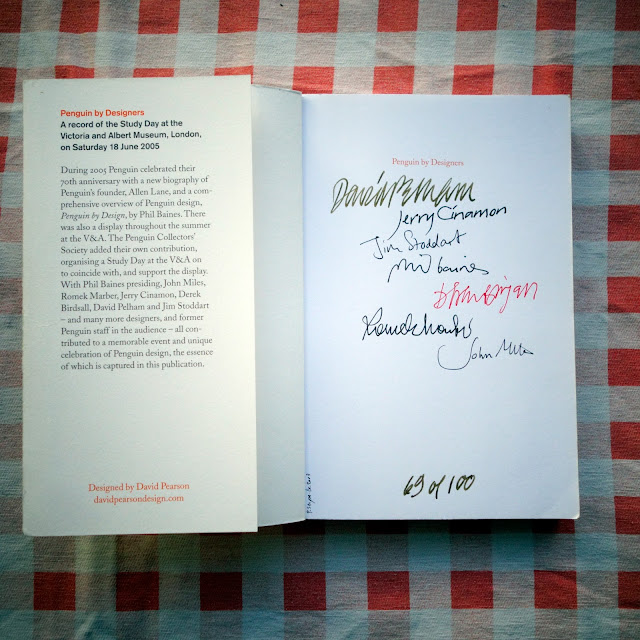 Penguin by Designers
A record of the Study Day at the
Victoria and Albert Museum, London,
on Saturday 18 June 2005
During 2005 Penguin celebrated their
70th anniversary with a new biography of
Penguin's founder, Allen Lane, and a com-
prehensive overview of Penguin design,
Penguin by Design, by Phil Baines. There
was also a display throughout the summer
at the V&A. The Penguin Collectors'
Society added their own contribution,
organising a Study Day at the V&A on
to coincide with, and support the display.
With Phil Baines presiding, John Miles,
Romek Marber, Jerry Cinamon, Derek
Birdsall, David Pelham and Jim Stoddart
– and many more designers, and former
Penguin staff in the audience – all con-
tributed to a memorable event and unique
celebration of Penguin design, the essence
of which is captured in this publication.
Designed by David Pearson
davidpearsondesign.com
Penguin by Designers
David Pelham
Jerry Cinamon
Jim Stoddart
phil baines
Romek Marber
John Miles
69 of 100